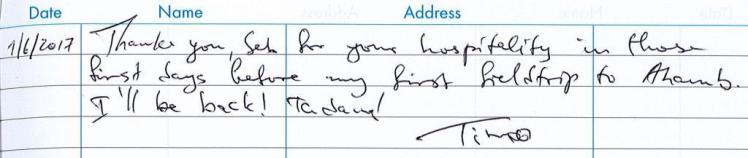 Date Name Address
1/6/2017 Thank you, Seb for your hospitality in those
first days before my first fieldtrip to Ahamb.
I'll be back! Tadau!
Timo